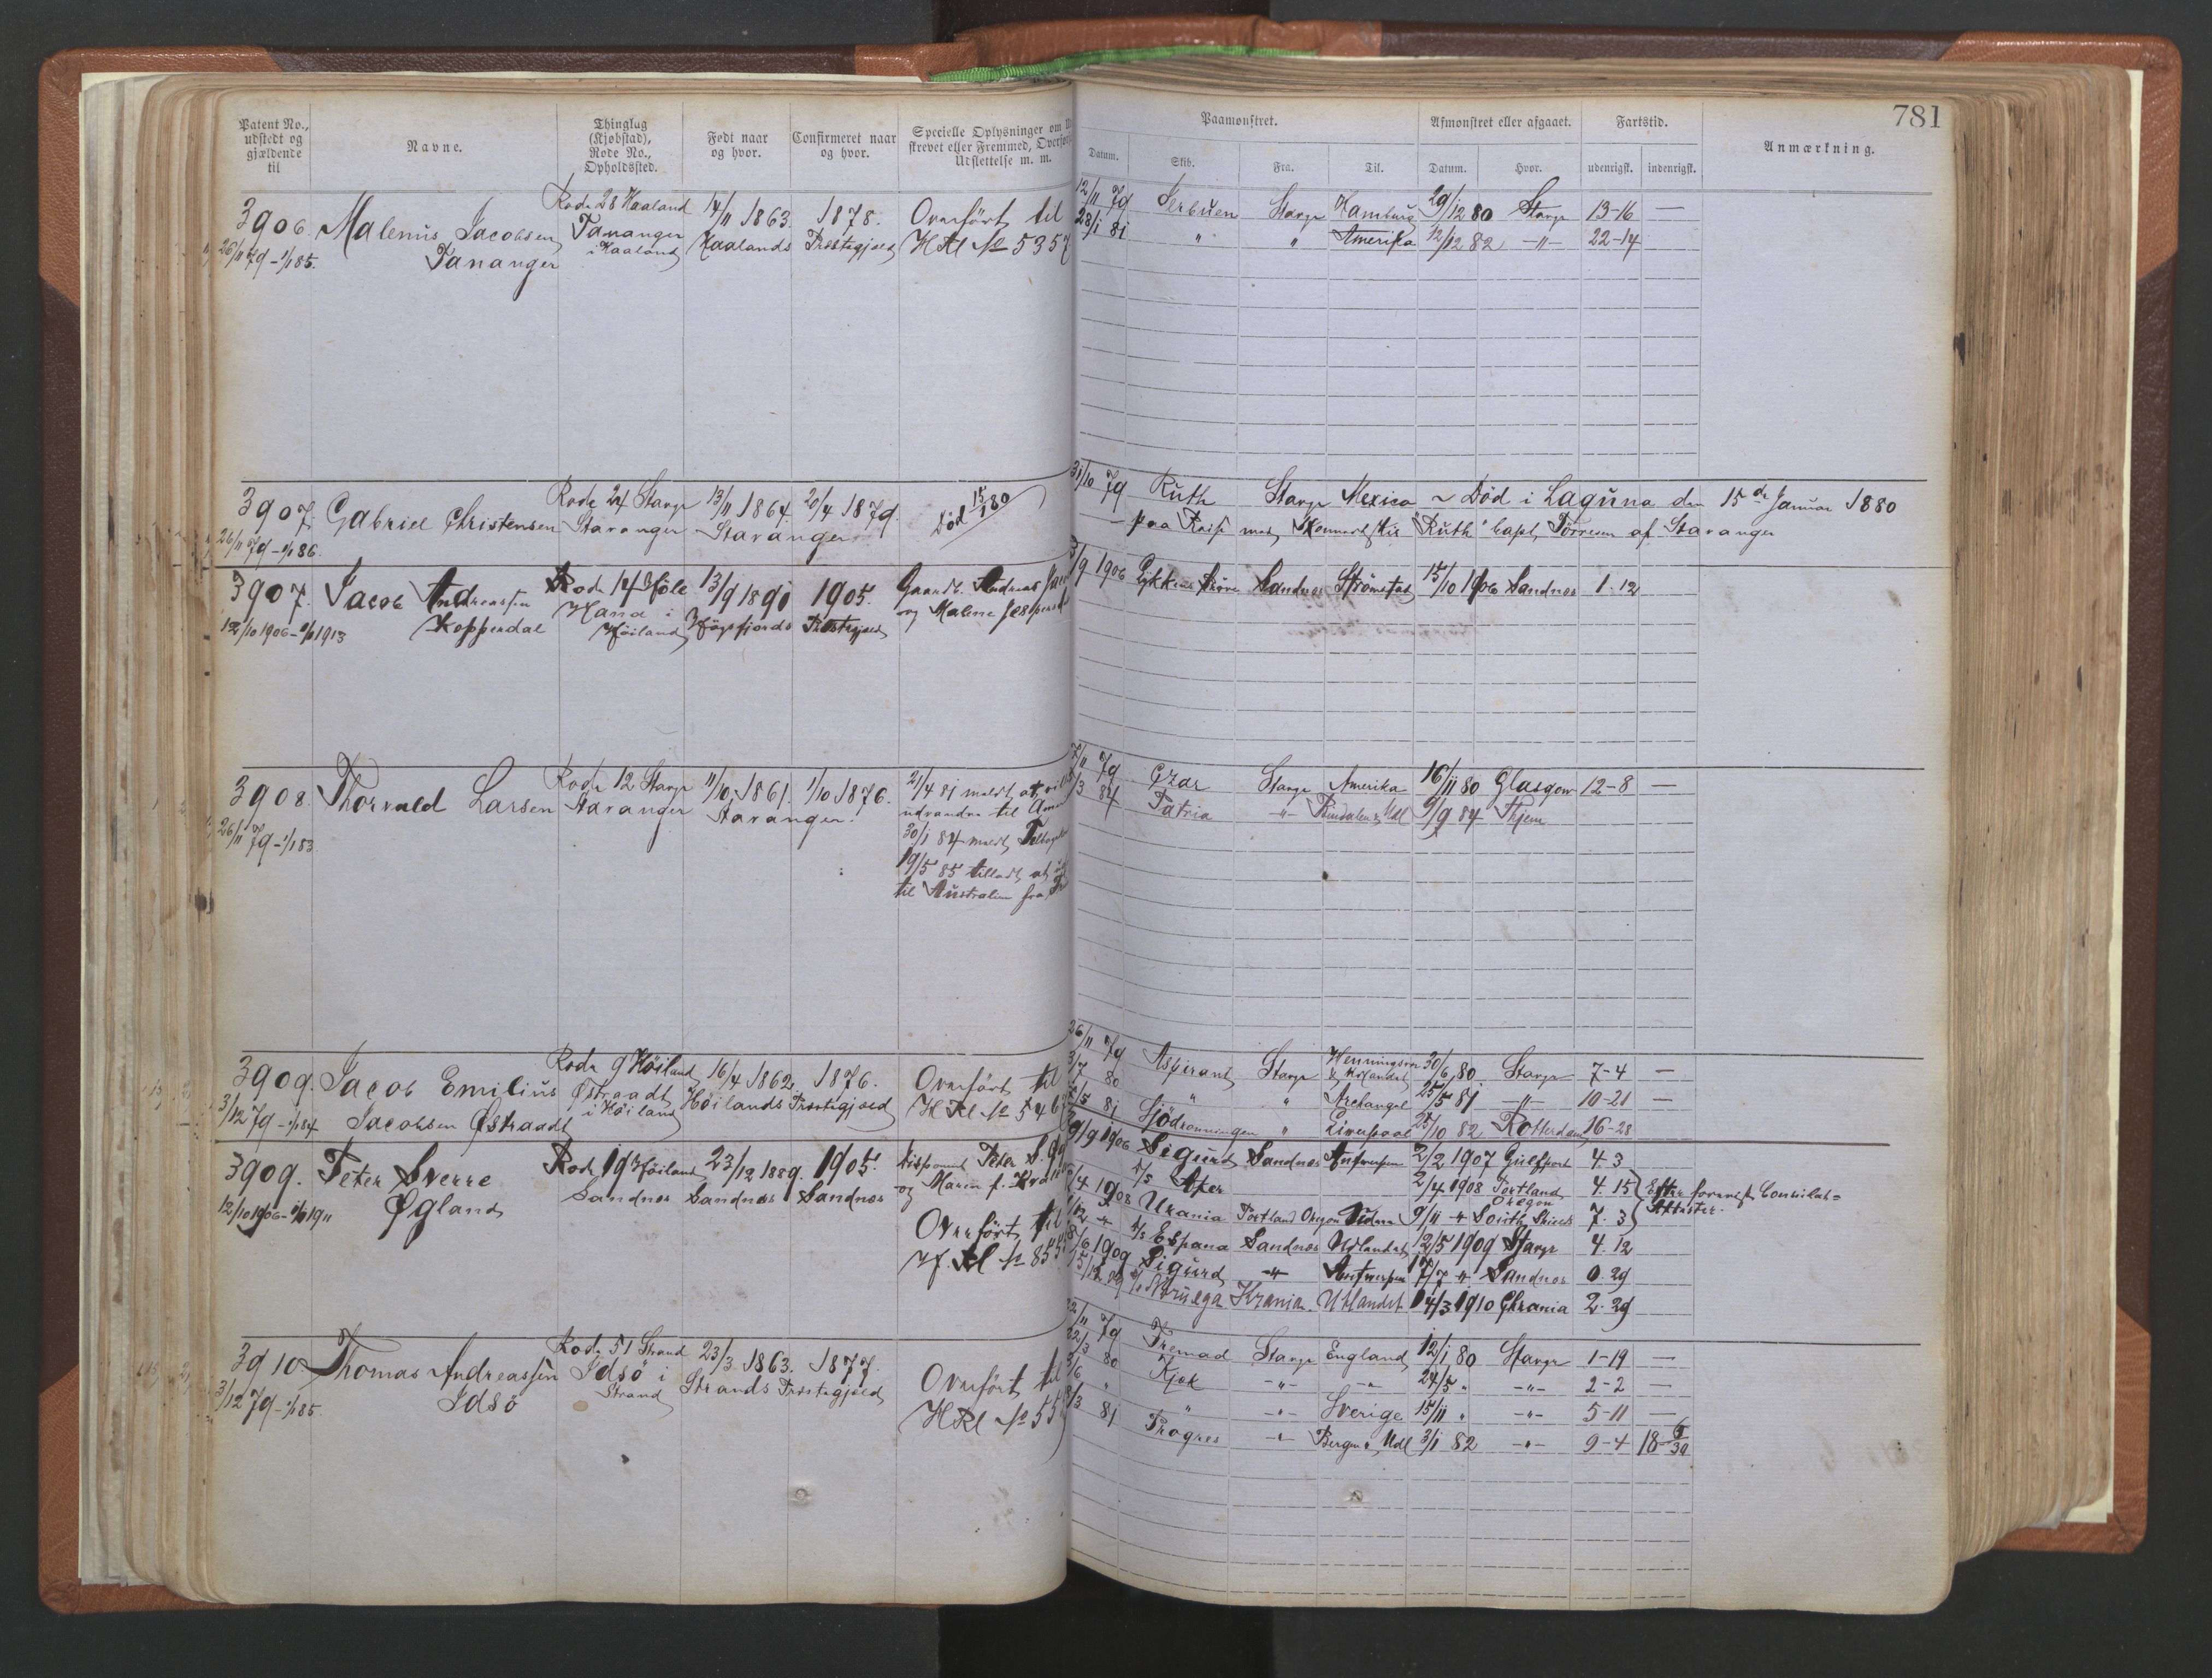 781
Patent No., udstedt og gjældende til
Navne.
Thinglag (Kjøbstad), Rode No., Opholdssted.
Født naar og hvor.
Confirmeret naar og hvor.
Specielle Oplysninger om
Udslettelse m. m.
Paamønstret.
Afmønstret eller afgaaet.
Fartstid.
Anmærkning.
Datum. Skib. Fra. Til. Datum. Hvor. udenrigsk. indenrigsk.
3906. Malenus Jacobsen Rode 28 Haaland 14/11 1863. 1878. Overført til
26/11 79 - 1/1 85. Tananger Tananger i Haaland Haalands Præstegjæld HRl No 5357
12/11 79 Starge Hamburg 29/12 80 Starge 13-16 —
28/1 81 " " Amerika 12/12 82 -"- 22-14
3907. Gabriel Christensen Rode 24 Starge 13/11 1864. 20/4 1879. Død 15/1 80
26/11 79 - 1/1 86. Stavanger Stavanger
31/10 79 Ruth Starge Mexico ~ Død i Laguna den 15de Januar 1880
paa Reise med Ruth Capt. Tørresen af Stavanger
3907. Jacob Andreassen Rode 14 Høle 13/9 1890 1905.
12/10 1906 - 1/1 1913 Kopperdal Hana i Høiland Høgsfjords Præstegjæld og Malene
/9 1906 Sandnes Strømstad 15/10 1906 Sandnes 1.12
3908. Thorvald Larsen Rode 12 Starge 11/10 1861. 1/10 1876. 21/4 81 meldt at vil
26/11 79 - 1/1 83 Stavanger Stavanger. udvandre til
30/1 84 meldt
19/5 85 tilladt at
til Australien fra
7/11 79 Czar Starge Amerika 16/11 80 Glasgow 12-8 —
/3 84 Patria -"- 9/9 84 Hjem
3909. Jacob Emilius Rode 9 Høiland 16/4 1862. 1876. Overført til
3/12 79 - 1/1 84 Jacobsen Østraadt Østraadt i Høiland Høilands Præstegjæld HRl No 546
26/11 79 Aspirant Starge 30/6 80 Starge 7-4 —
3/7 80 " " Archangel 25/5 81 -"- 10-21 —
/5 81 Sjødronningen " Liverpool 25/10 82 Rotterdam 16-28
3909. Peter Sverre Rode 19 Høiland 23/12 1889. 1905. Peter S.
12/10 1906 - 1/1 1911 Øgland Sandnes Sandnes Sandnes og Maren f.
Overført til
Hf. Rl No 855
/9 1906 Sigurd Sandnes Antwerpen 2/2 1907 Gulfport 4.3
2/4 1908 Portland Oregon 4.15
/4 1908 Urania Portland Oregon 9/11 " South Shields 7.3
Efter forevist Consulat-Attester.
S/S Espana Sandnes Udlandet 12/5 1909 Starge 4.12
/6 1909 Sigurd -"- Antwerpen 17/7 " Sandnes 0.29
Noruega Krania. Utlandet 14/3 1910 Chrania 2.29
3910. Thomas Andreassen Rode 51 Strand 23/3 1863. 1877. Overført til
3/12 79 - 1/1 85. Idsø Idsø i Strand Strands Præstegjæld HRl No 55
22/11 79 Fremad Starge England 12/1 80 Starge 1-19 —
22/3 80 Kjæk -"- -"- 24/5 " -"- 2-2 —
/6 " " -"- Sverige 15/11 " -"- 5-11 —
/3 81 Progres -"- Bergen & Udl 3/1 82 -"- 9-4